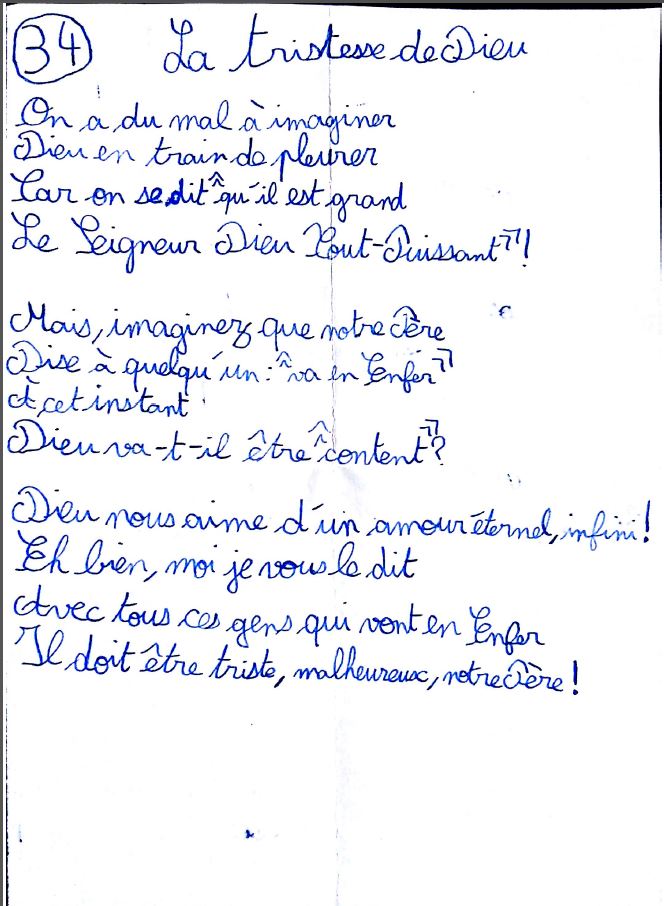 34 La tristesse de Dieu
On a du mal à imaginer
Dieu en train de pleurer
Car on se dit "qu'il est grand
Le Seigneur Dieu Tout-Puissant"!
Mais, imaginez que notre Père
Dise à quelqu'un : "va en Enfer"
À cet instant
Dieu va-t-il être "content"?
Dieu nous aime d'un amour éternel, infini!
Eh bien, moi je vous le dit
Avec tous ces gens qui vont en Enfer
Il doit être triste, malheureux, notre Père!